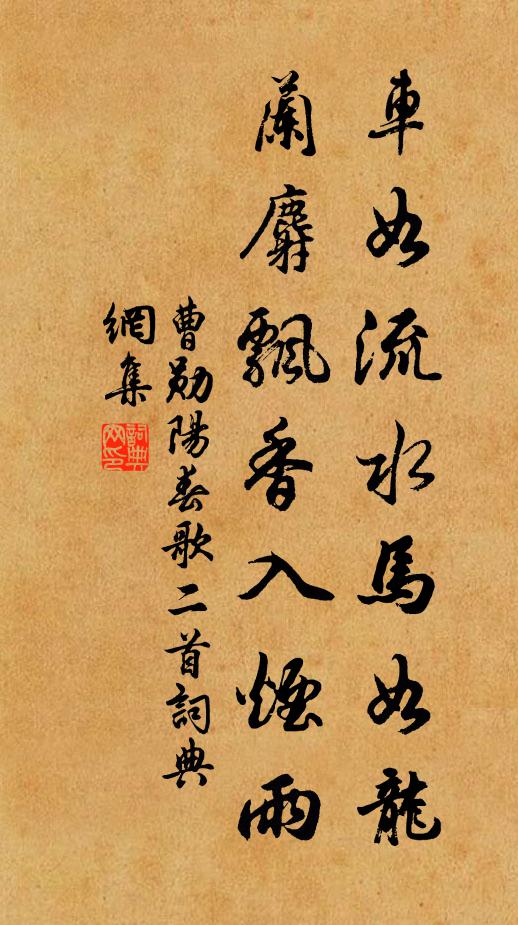 車如流水馬如龍
蘭麝飄香入煙雨
曹勛陽春歌二首詞典
網集
詞典
网印